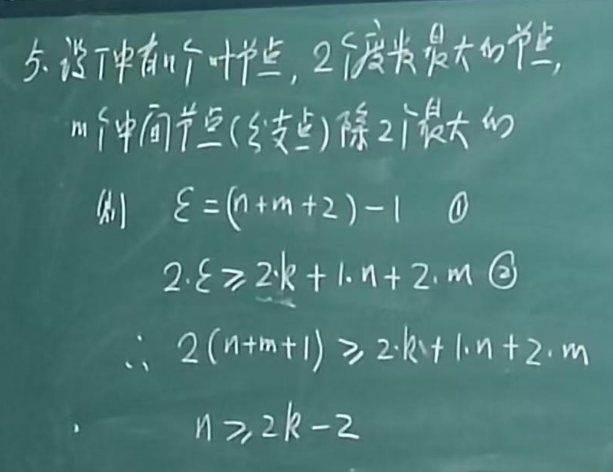 5. 设T中有n个叶节点, 2个度数最大的节点,
m个中间节点(分支点)除2个最大的
则 ε=(n+m+2)-1 ①
2·ε≥2·k+1·n+2·m ②
∴ 2(n+m+1)≥2·k+1·n+2·m
n≥2k-2